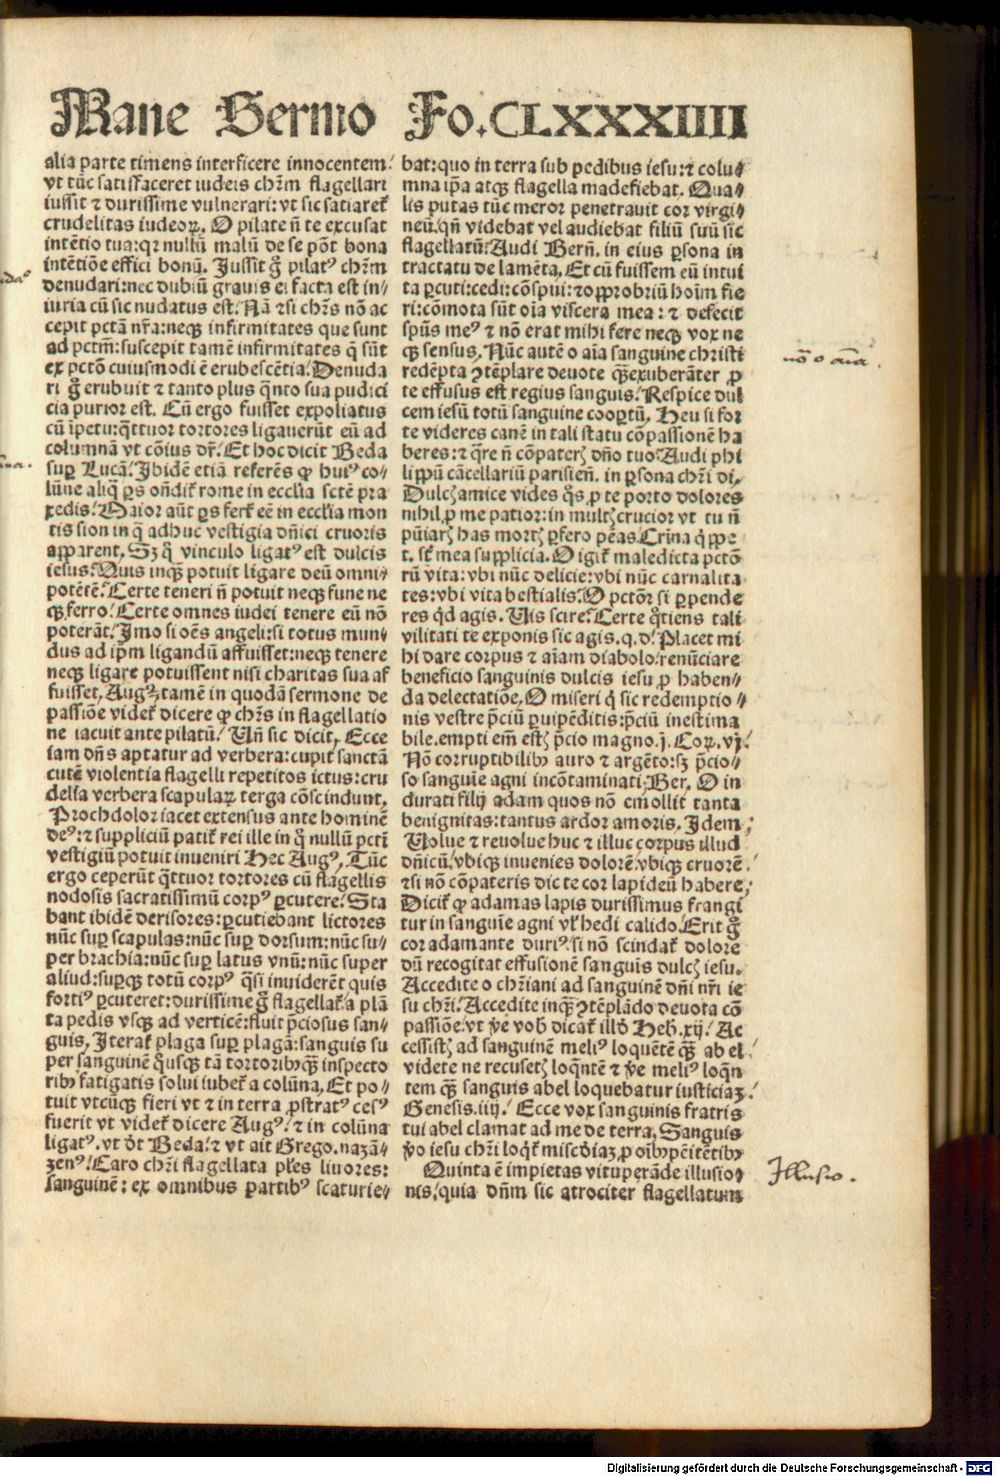 Mane Sermo Fo.CLXXXIIII
alia parte timens interficere innocentem:
vt tūc satisfaceret iudeis chr̄m flagellari
iussit ⁊ durissime vulnerari: vt sic satiaret̄
crudelitas iudeoꝝ. O pilate n̄ te excusat
intētio tua: qꝛ nullū malū de se pōt bona
intētiōe effici bonū. Jussit g̊ pilatꝰ chr̄m
denudari: nec dubiū grauis ei facta est in⸗
iuria cū sic nudatus est. Nā ⁊ si chr̄s nō ac
cepit pctā nr̄a: neqꝫ infirmitates que sunt
ad pctm̄: suscepit tamē infirmitates q̄ sūt
ex pctō cuiusmodi ē erubescētia. Denuda
ri g̊ erubuit ⁊ tanto plus q̄nto sua pudici
cia purior est. Cū ergo fuisset expoliatus
cū īpetu: q̄ttuor tortores ligauerūt eū ad
columnā vt cōius dr̄. Et hoc dicit Beda
suꝑ Lucā. Ibidē etiā referēs ꝙ huiꝰ co⸗
lūne aliq̄ ꝑs ondit̄ rome in ecclia scte pra
xedis. Maior aūt ꝑs fert̄ eē in ecclia mon
tis sion in q̄ adhuc vestigia dn̄ici cruoris
apparent. Sꝫ q̄ vinculo ligatꝰ est dulcis
iesus. Quis inqꝫ potuit ligare deū omni⸗
potētē. Certe teneri n̄ potuit neqꝫ fune ne
qꝫ ferro. Certe omnes iudei tenere eū nō
poterāt. Imo si oēs angeli: si totus mun⸗
dus ad ip̄m ligandū affuisset: neqꝫ tenere
neqꝫ ligare potuissent nisi charitas sua af
fuisset. Augꝰ. tamē in quodā sermone de
passiōe videt̄ dicere ꝙ chr̄s in flagellatio
ne iacuit ante pilatū. Un̄ sic dicit. Ecce
iam dn̄s aptatur ad verbera: cupit sanctā
cutē violentia flagelli repetitos ictus: cru
delia verbera scapulaꝝ terga cōscindunt.
Prochdolor iacet extensus ante hominē
deꝰ: ⁊ suppliciū patit̄ rei ille in q̄ nullū pcti
vestigiū potuit inueniri Hec Augꝰ. Tūc
ergo ceperūt q̄ttuor tortores cū flagellis
nodosis sacratissimū corpꝰ ꝑcutere. Sta
bant ibidē derisores: ꝑcutiebant lictores
nūc suꝑ scapulas: nūc suꝑ dorsum: nūc su⸗
per brachia: nūc suꝑ latus vnū: nūc super
aliud: suꝑqꝫ totū corpꝰ q̄si inuiderēt quis
fortiꝰ ꝑcuteret: durissime g̊ flagellat̄ a plā
ta pedis vsqꝫ ad verticē: fluit p̄ciosus san⸗
guis. Iterat̄ plaga suꝑ plagā: sanguis su
per sanguinē quousqꝫ tā tortoribꝫqꝫ inspecto
ribꝫ fatigatis solui iubet̄ a colūna. Et po⸗
tuit vtcūqꝫ fieri vt ⁊ in terra ꝓstratꝰ cesꝰ
fuerit vt videt̄ dicere Augꝰ. ⁊ in colūna
ligatꝰ. vt dt̄ Beda. ⁊ vt ait Grego. nazā⸗
zenꝰ. Caro chr̄i flagellata ples liuores:
sanguinē: ex omnibus partibꝰ scaturie⸗
bat: quo in terra sub pedibus iesu: ⁊ colu⸗
mna ip̄a atqꝫ flagella madefiebat. Qua⸗
lis putas tūc meror penetrauit cor virgi⸗
neū. qn̄ videbat vel audiebat filiū suū sic
flagellatū. Audi Bern̄. in eius ꝑsona in
tractatu de lamēta. Et cū fuissem eū intui
ta ꝑcuti: cedi: cōspui: ⁊ opprobriū hoīm fie
ri: cōmota sūt oīa viscera mea: ⁊ defecit
spūs meꝰ ⁊ nō erat mihi fere neqꝫ vox ne
qꝫ sensus. Nūc autē o aīa sanguine christi
redēpta ꝯtēplare deuote qꝫ exuberāter ꝓ
te effusus est regius sanguis. Respice dul
cem iesū totū sanguine coopertū. Heu si for
te videres canē in tali statu cōpassionē ha
beres: ⁊ q̄re n̄ cōpateris dn̄o tuo. Audi phi
lippū cācellariū parisien̄. in ꝑsona chr̄i di.
Dulcis amice vides q̄s ꝓ te porto dolores
nihil ꝓ me patior: in multis crucior vt tu n̄
pūiaris has mortis ꝑfero pēas. Crīna
t. st̄ mea supplicia. O igit̄ maledicta pctō
rū vita: vbi nūc delicie: vbi nūc carnalita
tes: vbi vita bestialis. O pctōr si ꝑpende
res qd̄ agis. Uis scire. Certe q̄tiens tali
vilitati te exponis sic agis. q. d. Placet mi
hi dare corpus ⁊ aīam diabolo. renūciare
beneficio sanguinis dulcis iesu ꝓ haben⸗
da delectatiōe. O miseri q̄ sic redemptio⸗
nis vestre p̄ciū ꝑuipēditis: p̄ciū inestima
bile. empti em̄ estis p̄cio magno. j. Coꝝ. vj.
Nō corruptibilibꝫ auro ⁊ argēto: sꝫ p̄cio⸗
so sanguīe agni incōtaminati. Ber. O in
durati filij adam quos nō emollit tanta
benignitas: tantus ardor amoris. Idem.
Uolue ⁊ reuolue huc ⁊ illuc corpus illud
dn̄icū. vbiqꝫ inuenies dolorē. vbiqꝫ cruorē.
⁊ si nō cōpateris dic te cor lapideū habere.
Dicit̄ ꝙ adamas lapis durissimus frangi
tur in sanguīe agni vl̄ hedi calido. Erit g̊
cor adamante duriꝰ. si nō scindat̄ dolore
dū recogitat effusionē sanguīs dulcis iesu.
Accedite o chr̄iani ad sanguinē dn̄i nr̄i ie
su chr̄i. Accedite inqꝫ ꝯtēplādo deuota cō
passiōe. vt ve vob̄ dicat̄ illd̄ Heb. xij. Ac
cessistis ad sanguinē meliꝰ loquētē qꝫ abel.
videte ne recusetis loqn̄tē ⁊ ve meliꝰ loqn̄
tem qꝫ sanguis abel loquebatur iusticiaꝫ.
Genesis. iiij. Ecce vox sanguinis fratris
tui abel clamat ad me de terra. Sanguis
vo iesu chr̄i loqt̄ mīscdiaꝫ ꝓ oībꝫ penitētibꝫ
Quinta ē impietas vituperāde illusio⸗
nis. quia dn̄m sic atrociter flagellatum
nō o aīa.
Illusio.
Digitalisierung gefördert durch die Deutsche Forschungsgemeinschaft - DFG